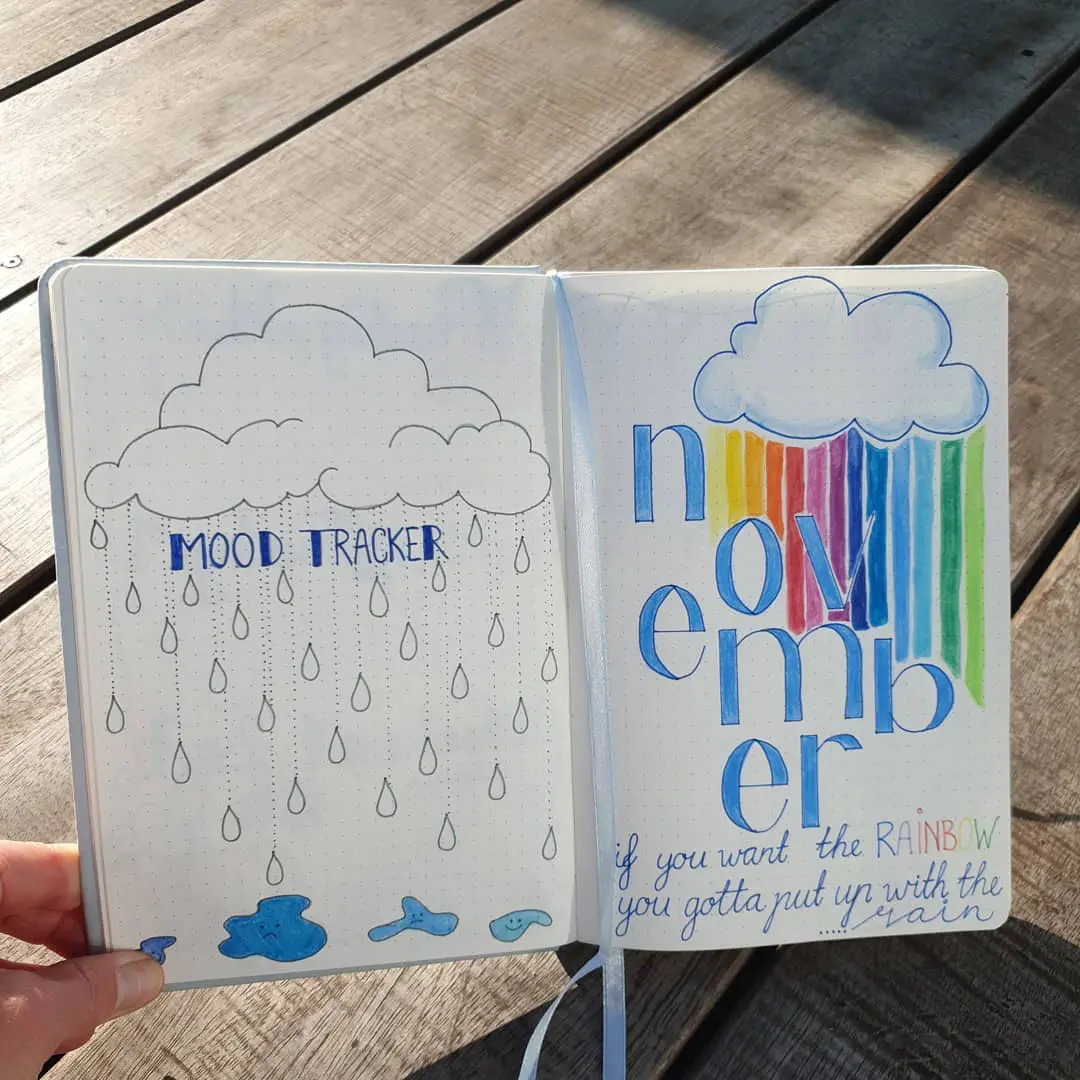 MOOD TRACKER
n
ov
emb
er
if you want the RAiNBOW
you gotta put up with the
rain